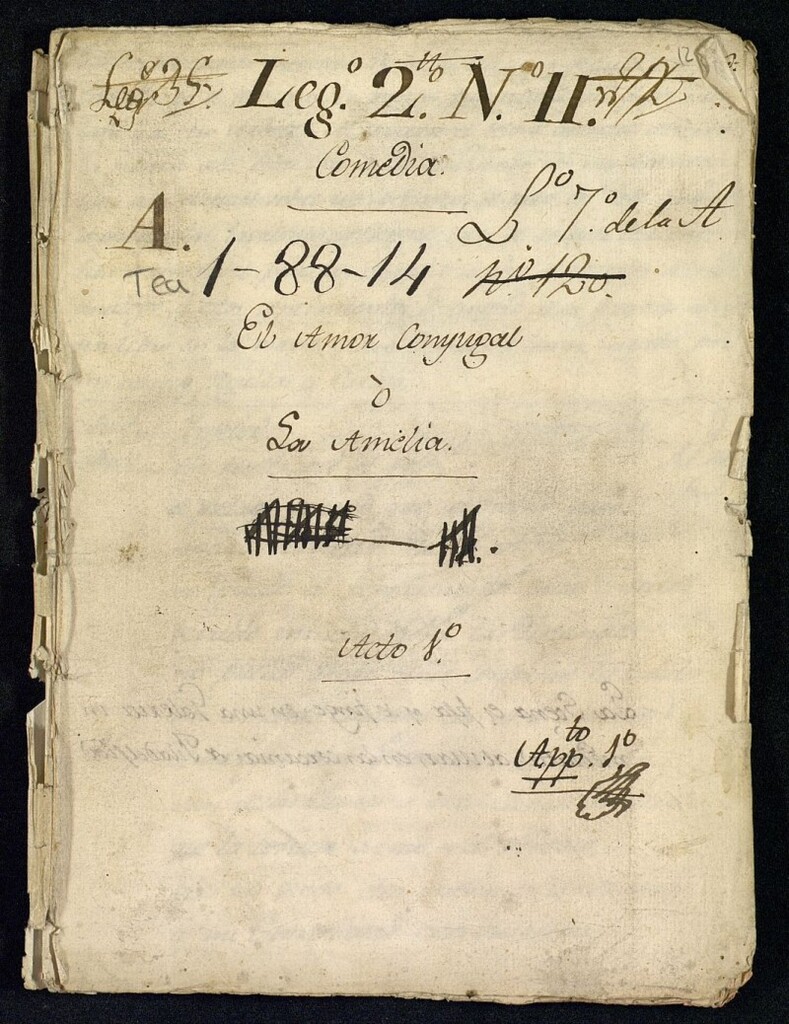 Leg.º 35. Leg.º 2.to N.º 11. nº 12
Comedia.
A. L.º 7.º de la A
Tea 1-88-14 nº 120.
El Amor Conyugal
ò
La Amelia.
Acto 1.º
App.to 1.º